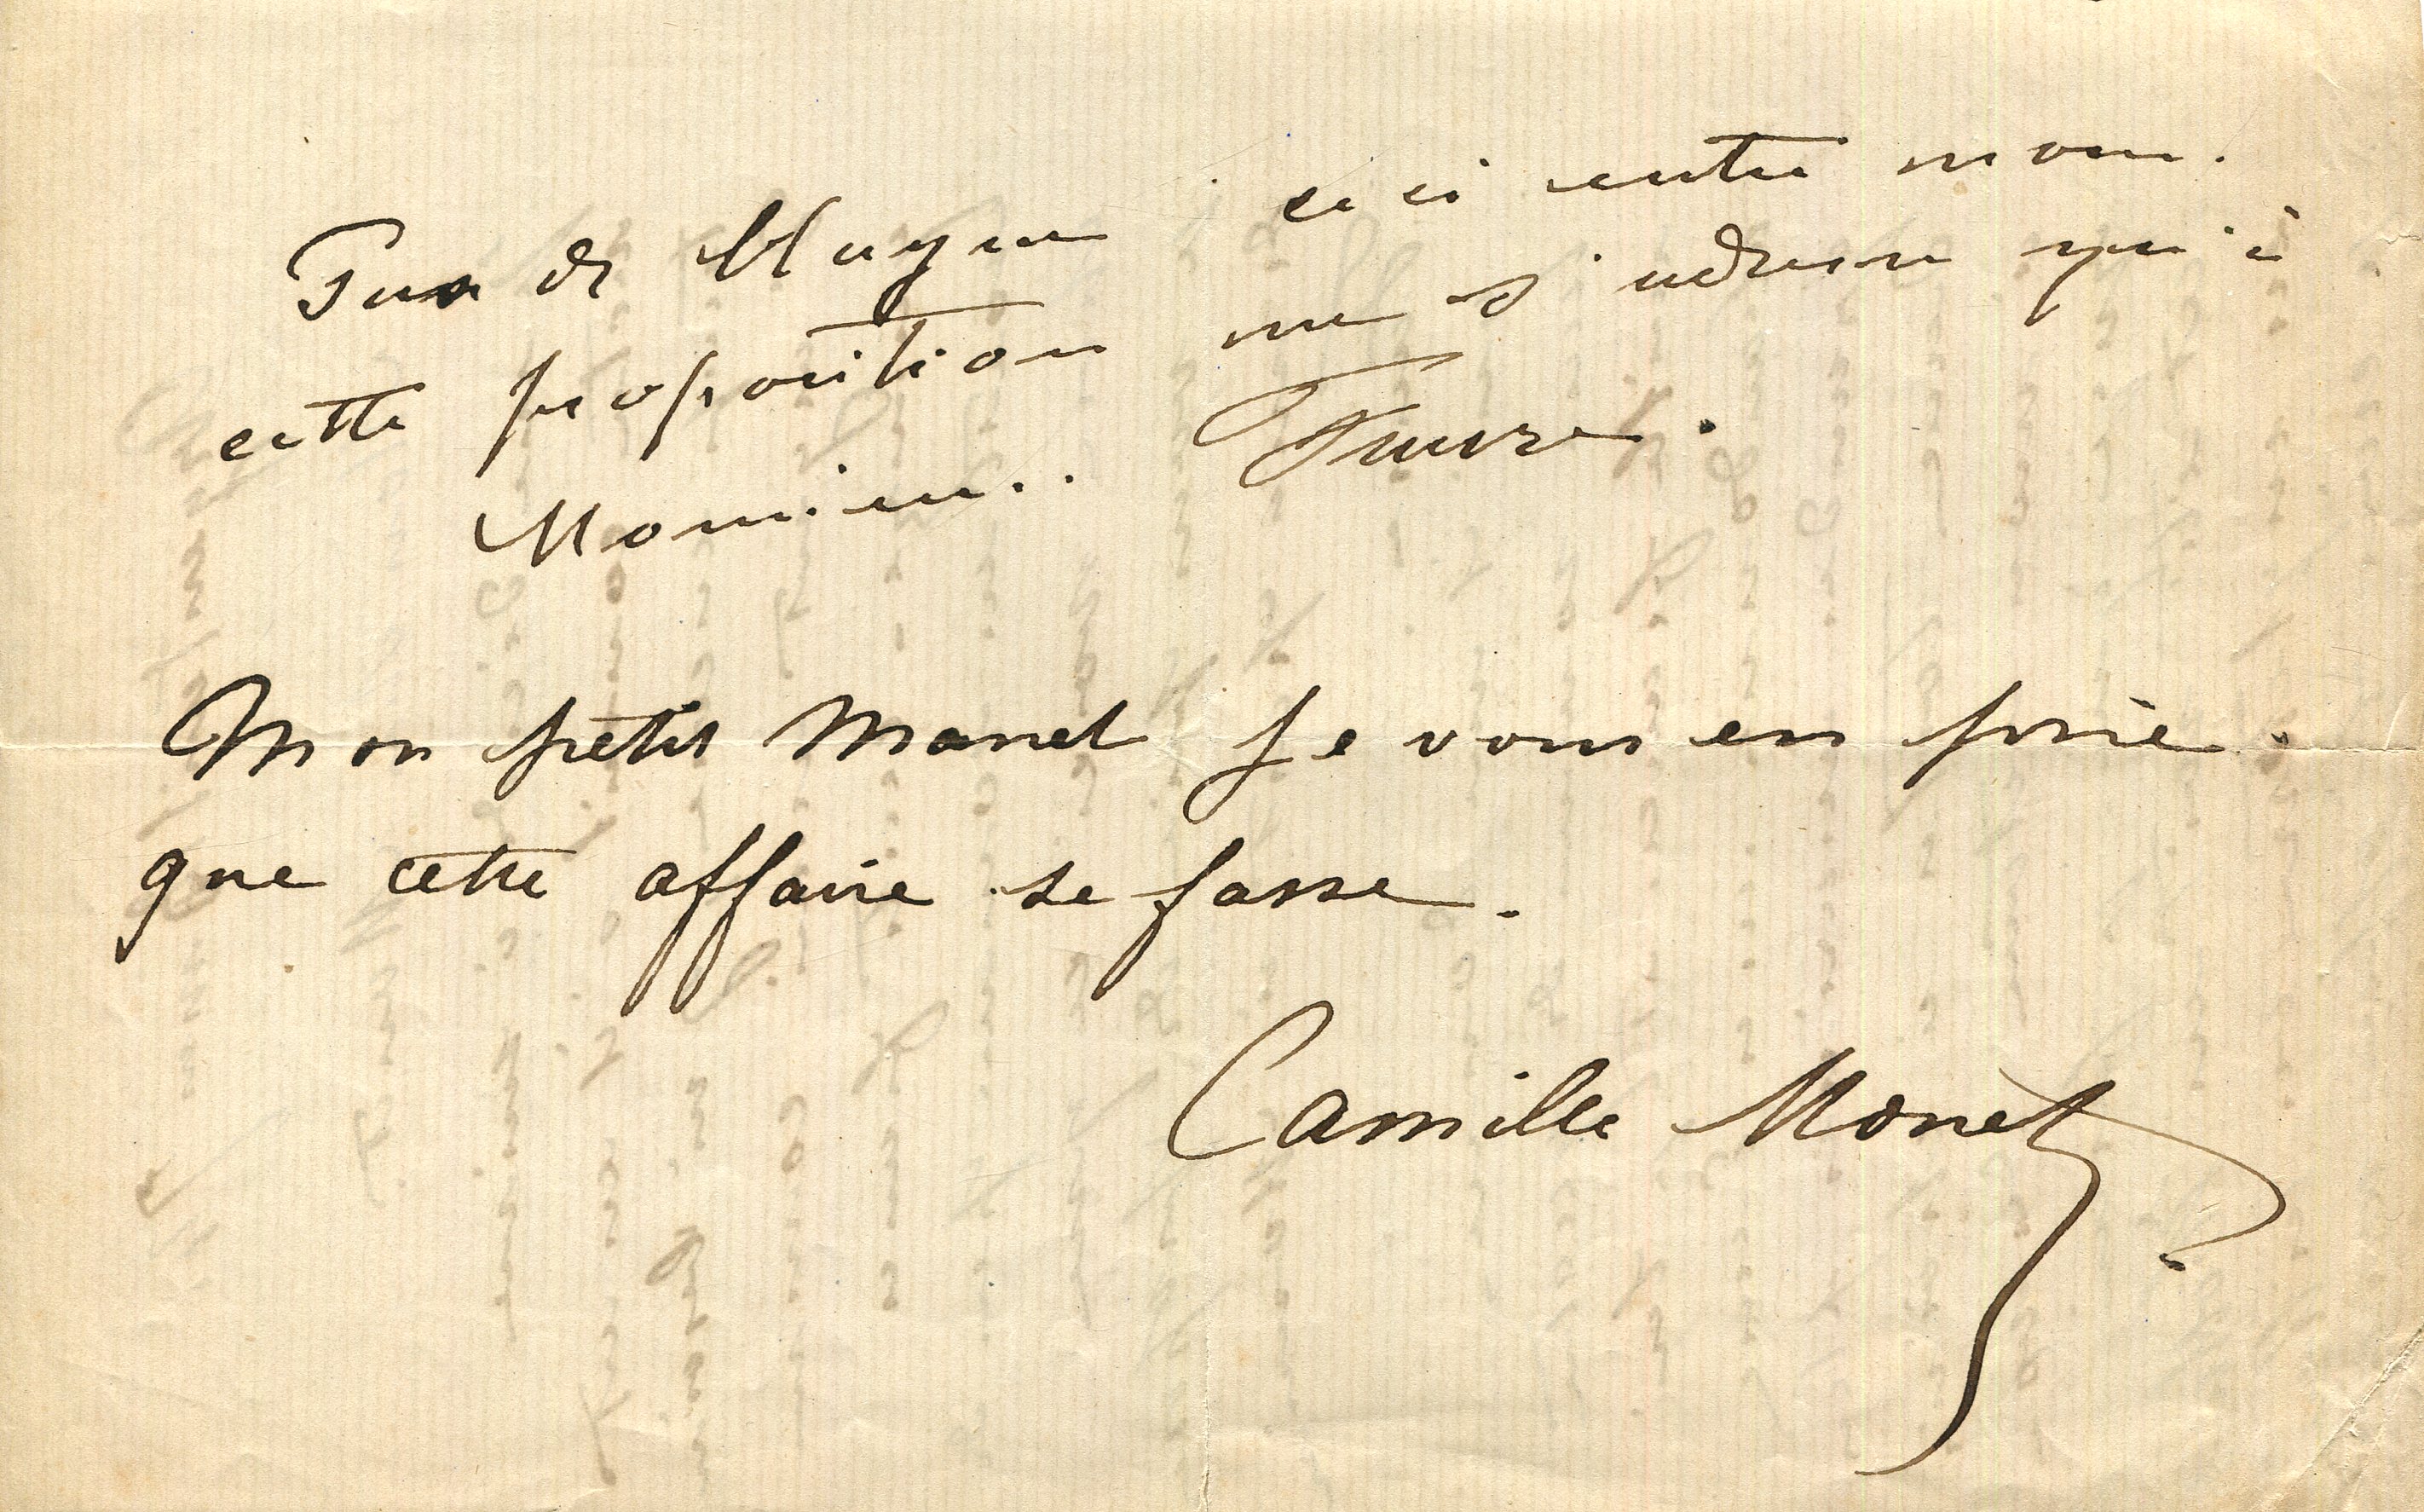 Pas de blague ceci entre nous.
cette proposition ne s'adresse qu'à
Monsieur. Faure.
Mon petit Manet je vous en prie.
que cette affaire se fasse.
Camille Monet